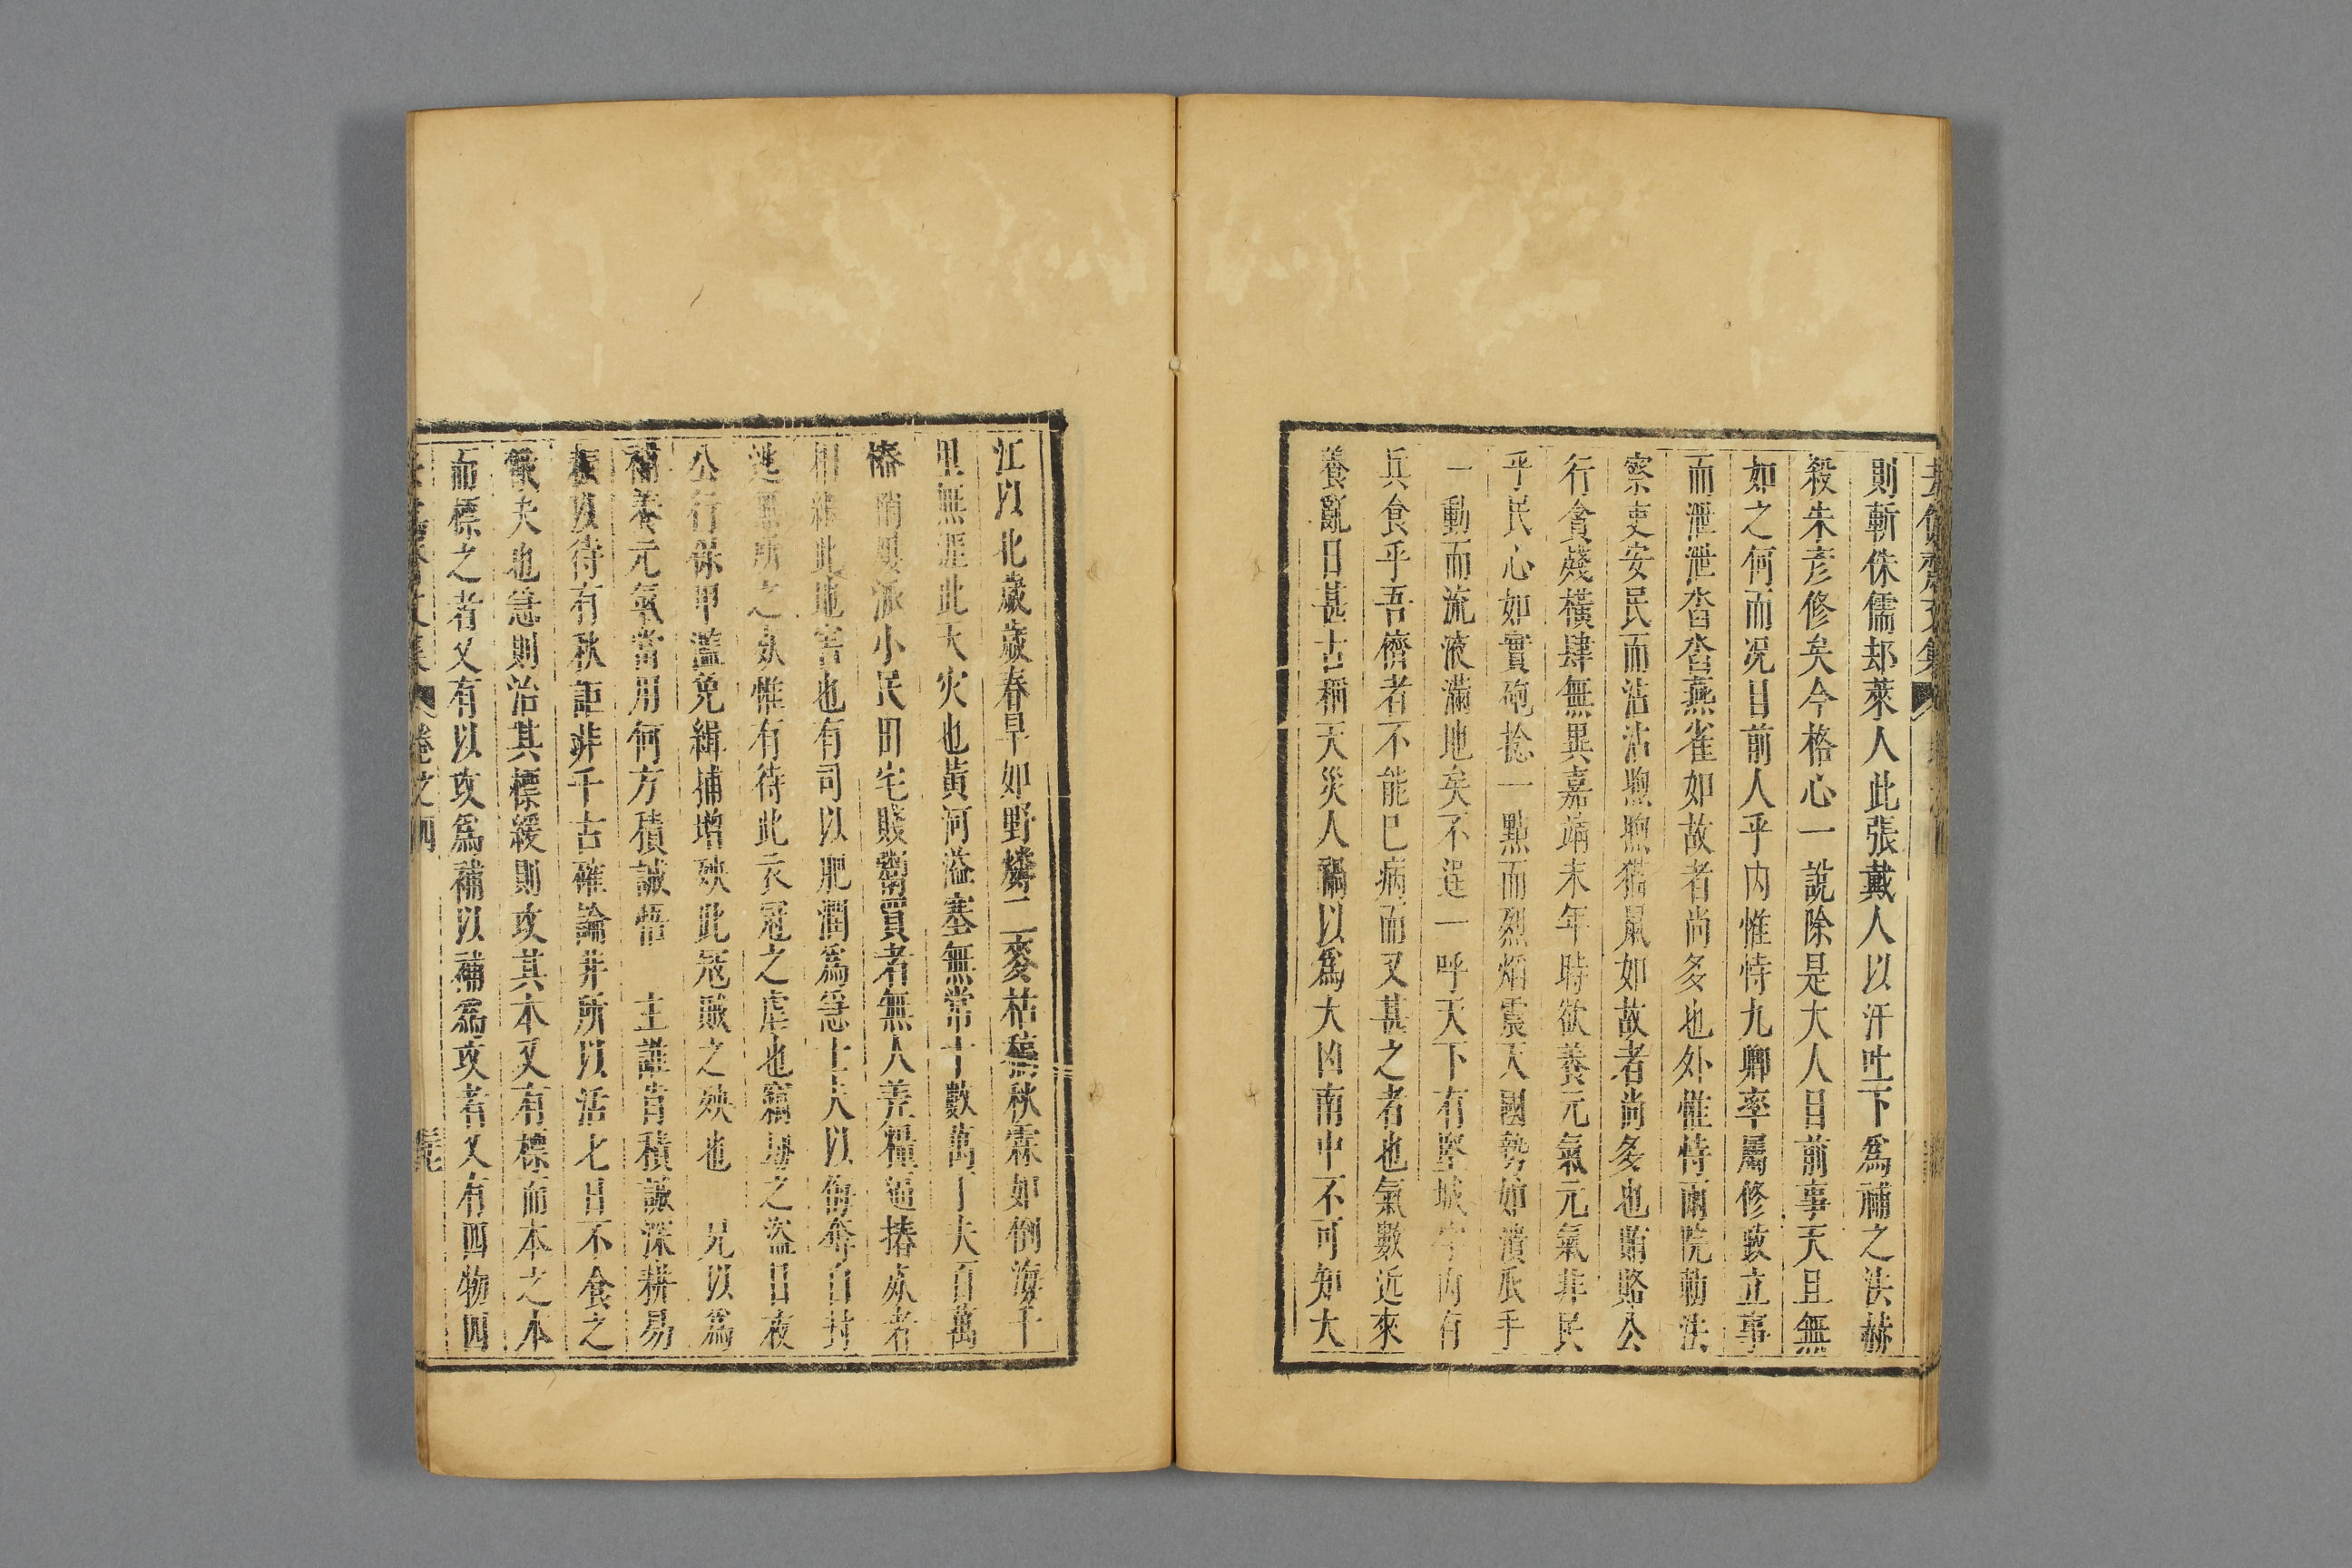 去偽齋文集
則斬侏儒却萊人此張戴人以汗吐下爲補之法赫
殺朱彦修矣今格心一說除是大人目前事天且無
如之何而况目前人乎内惟恃九卿率屬修政立事
而泄泄沓沓燕雀如故者尚多也外惟恃兩院勑法
察吏安民而沾沾煦煦猫鼠如故者尚多也賄賂公
行貪殘橫肆無異嘉靖末年時欲養元氣元氣非民
乎民心如實砲捻一點而烈焰震天國勢如潰瓜手
一動而流液滿地矣不逞一呼天下有堅城乎内有
兵食乎吾儕者不能已病而又甚之者也氣數近來
養亂日甚古稱天災人禍以爲大凶南中不可知大
江以北歲歲春旱如野燐二麥枯稿秋霖如倒海千
里無涯此天灾也黃河溢塞無常十數萬丁夫百萬
樁 派小民田宅賤鬻買者無人差糧逼捶 者
相 此地害也有司以肥潤爲急士夫以侮奪自封
逃無所之 惟有待此衣冠之虐也竊 之盜日夜
公行保甲濫免緝捕增殃此冦賊之殃也 兄以爲
補養元氣當用何方積誠悟 主誰肯積誠深耕易
耨以待有秋詎非千古確論非所以活七日不食之
餓夫也急則治其標緩則攻其本又有標而本之本
而標之者又有以攻爲補以補爲攻者又有四物四
文集 卷之四